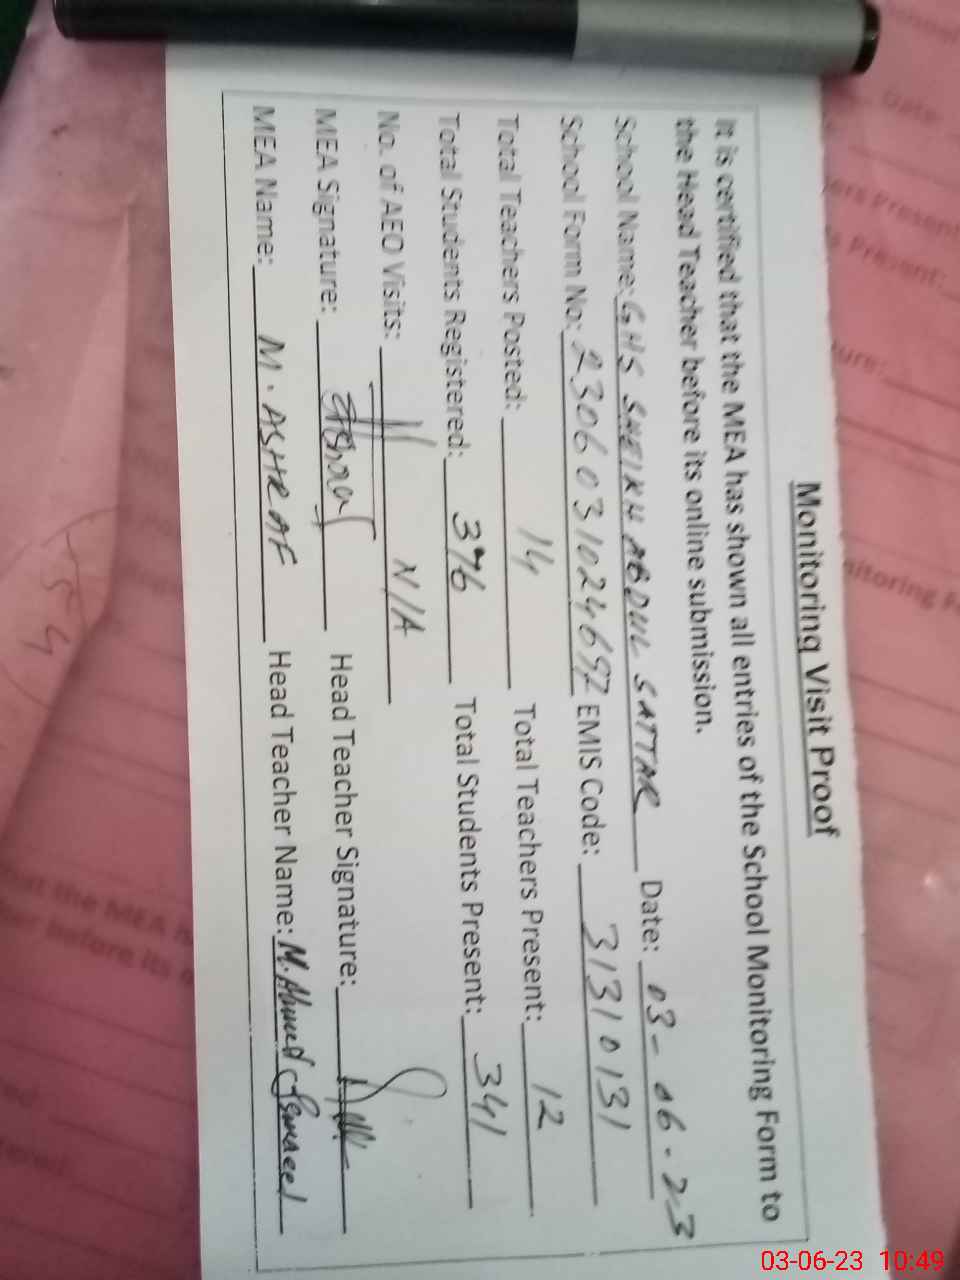 Monitoring Visit Proof
It is certified that the MEA has shown all entries of the School Monitoring Form to
the Head Teacher before its online submission.
School Name: GHS SHEIKH ABDUL SATTAR Date: 03-06-23
School Form No: 2306031024697 EMIS Code: 31310131
Total Teachers Posted: 14 Total Teachers Present: 12
Total Students Registered: 376 Total Students Present: 341
No. of AEO Visits: N/A
MEA Signature: Head Teacher Signature:
MEA Name: M. ASHRAF Head Teacher Name: M. Ahmed
03-06-23 10:49